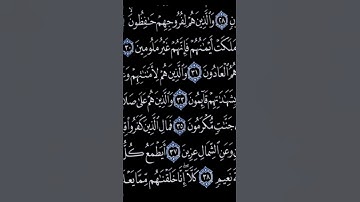 نٍ ٢٨ وَٱلَّذِينَ هُمۡ لِفُرُوجِهِمۡ حَٰفِظُونَ
مَلَكَتۡ أَيۡمَٰنُهُمۡ فَإِنَّهُمۡ غَيۡرُ مَلُومِينَ ٣٠
هُمُ ٱلۡعَادُونَ ٣١ وَٱلَّذِينَ هُمۡ لِأَمَٰنَٰتِهِمۡ وَعَ
بِشَهَٰدَٰتِهِمۡ قَآئِمُونَ ٣٣ وَٱلَّذِينَ هُمۡ عَلَىٰ صَلَا
جَنَّٰتٖ مُّكۡرَمُونَ ٣٥ فَمَالِ ٱلَّذِينَ كَفَرُواْ قِ
نِ وَعَنِ ٱلشِّمَالِ عِزِينَ ٣٧ أَيَطۡمَعُ كُلُّ
ةَ نَعِيمٖ ٣٨ كَلَّآۖ إِنَّا خَلَقۡنَٰهُم مِّمَّا يَعۡلَ